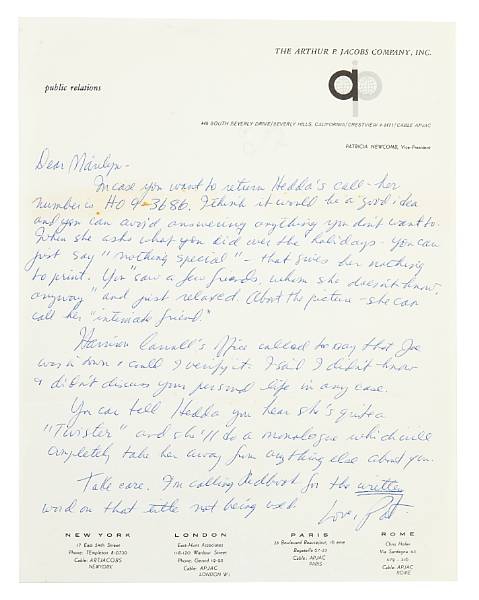 THE ARTHUR P. JACOBS COMPANY, INC.
public relations
ajp
449 SOUTH BEVERLY DRIVE/BEVERLY HILLS, CALIFORNIA/CRESTVIEW 4-5471/CABLE APJAC
PATRICIA NEWCOMB, Vice-President
Dear Marilyn-
In case you want to return Hedda's call - her
number is HO 9-3686. I think it would be a good idea
and you can avoid answering anything you don't want to.
When she asks what you did over the holidays - you can
just say "nothing special" - that gives her nothing
to print. You "saw a few friends, whom she doesn't know,
anyway" and just relaxed. About the picture - she can
call her "intimate friend."
Harrison Carroll's office called to say that Joe
was in town & could I verify it. I said I didn't know
& didn't discuss your personal life in any case.
You can tell Hedda you hear she's quite a
"Twister" and she'll do a monologue which will
completely take her away from anything else about you.
Take care. I'm calling Redbook for the written
word on that title not being used.
Love, Pat.
NEW YORK
17 East 54th Street
Phone: TEmpleton 8-0730
Cable: ARTJACOBS
NEWYORK
LONDON
118-120 Wardour Street
Cable: APJAC
LONDON W1
PARIS
Cable: APJAC
PARIS
ROME
Cable: APJAC
ROME